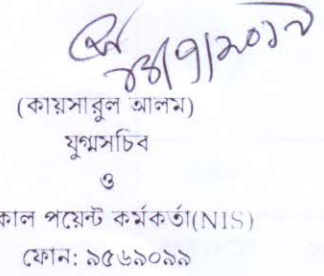 (কায়সারুল আলম)
যুগ্মসচিব
ও
কাল পয়েন্ট কর্মকর্তা(NIS)
ফোন: ৯৫৬৯০৯৯